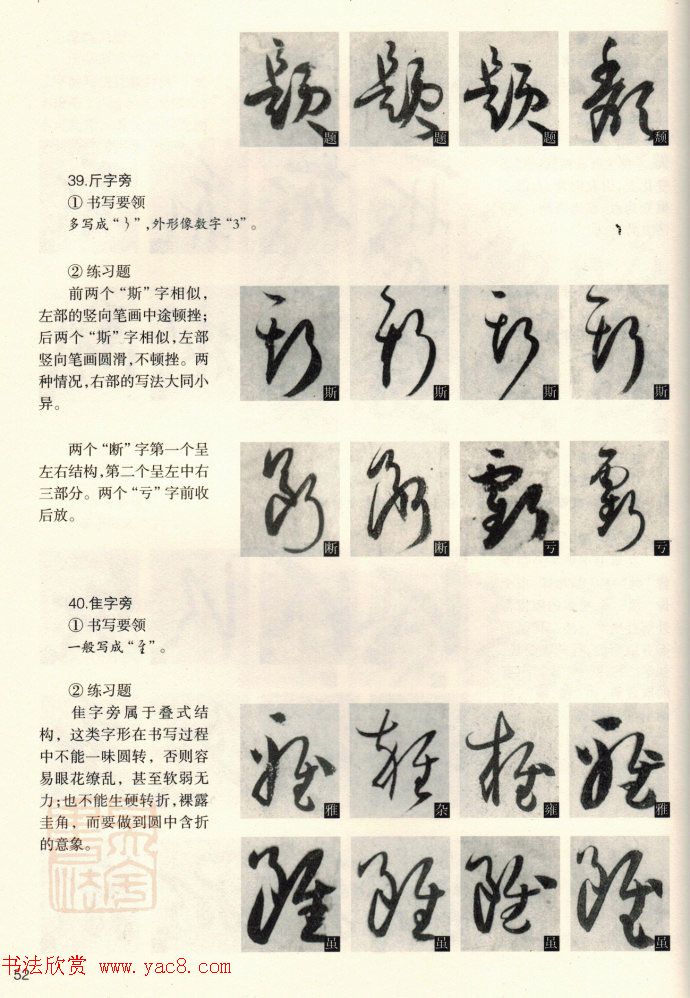 题 题 题 颓
39.斤字旁
① 书写要领
多写成“㇋”,外形像数字“3”。
② 练习题
前两个“斯”字相似,
左部的竖向笔画中途顿挫;
后两个“斯”字相似,左部
竖向笔画圆滑,不顿挫。两
种情况,右部的写法大同小
异。
斯 斯 斯 斯
两个“断”字第一个呈
左右结构,第二个呈左中右
三部分。两个“亏”字前收
后放。
断 断 亏 亏
40.隹字旁
① 书写要领
一般写成“ ”。
② 练习题
隹字旁属于叠式结
构，这类字形在书写过程
中不能一味圆转，否则容
易眼花缭乱，甚至软弱无
力;也不能生硬转折,裸露
圭角，而要做到圆中含折
的意象。
雅 杂 雍 雅
虽 虽 虽 虽
书法欣赏 www.yac8.com
52